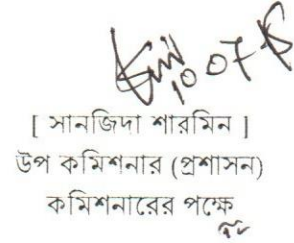 10 07 
[ সানজিদা শারমিন ]
উপ কমিশনার (প্রশাসন)
কমিশনারের পক্ষে